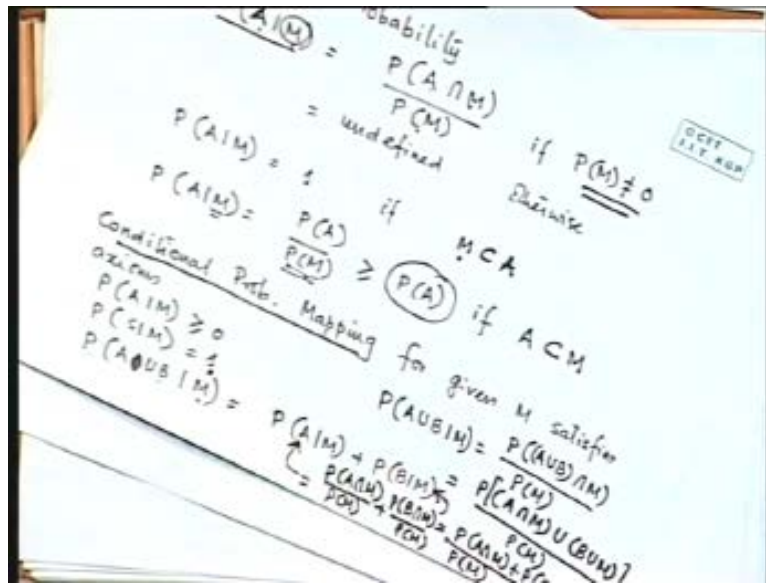 obability
(A|M) = P(A ∩ M) / P(M) if P(M) ≠ 0
= undefined Otherwise
P(A|M) = 1 if M ⊂ A
P(A|M) = P(A) / P(M) ≥ P(A) if A ⊂ M
Conditional Prob. Mapping for given M satisfies
axioms
P(A|M) ≥ 0
P(S|M) = 1
P(A∪B|M) = P(A|M) + P(B|M)
= P(A∩M) / P(M) + P(B∩M) / P(M) = P(A∩M) + P(
P(M)
P(A∪B|M) = P((A∪B)∩M) / P(M)
= P[(A∩M) ∪ (B∪M)] / P(M)
CCET
I.I.T. KGP